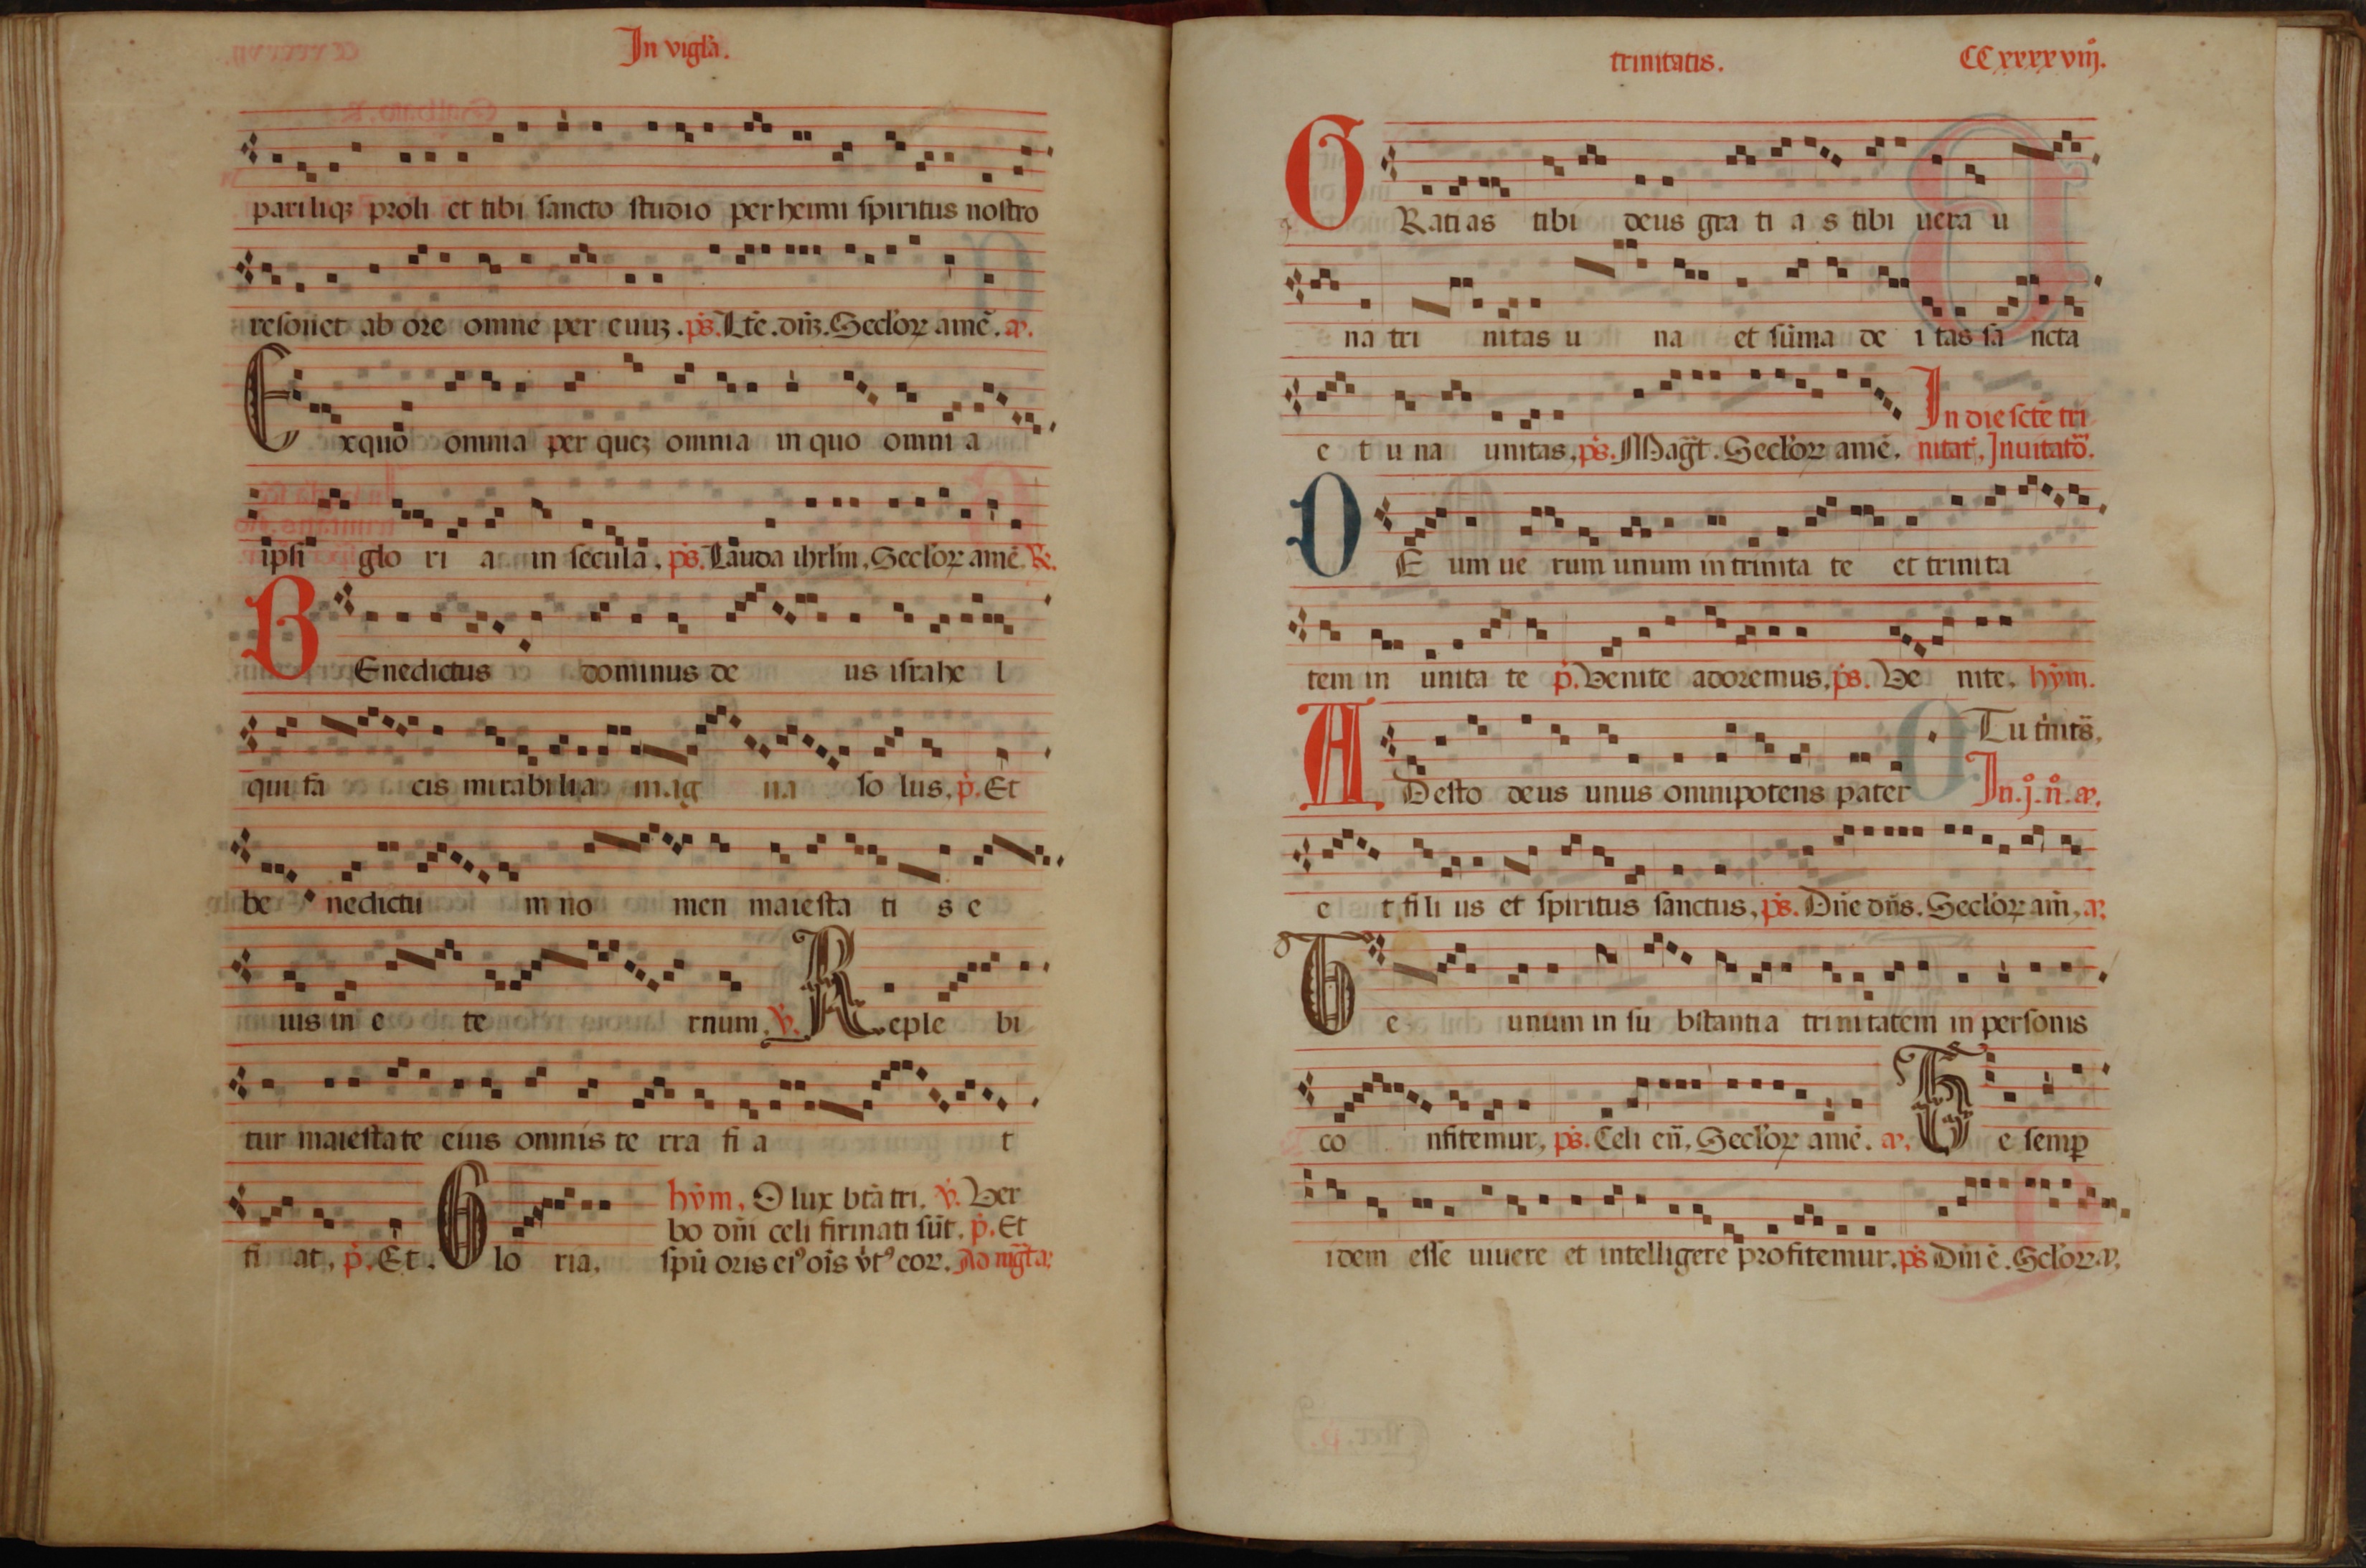 In vigla.
parilique proli et tibi sancto studio perhenni spiritus nostro
resonet ab ore omne per euuz. ps. Lte. dnz. Seclorꝝ ame. a.
Exquo omnia per quez omnia in quo omni a
ipsi glo ri a in secula. ps. Lauda ihrlm. Seclorꝝ ame. R.
BEnedictus dominus de us israhe l
qui fa cis mirabilia mag na so lus. p. Et
be nedictu m no men maiesta ti s e
ius in e te rnum. v. Reple bi
tur maiestate eius omnis te rra fi a t
fi at. p. Et. Glo ria.
hym. O lux bta tri. v. Ver
bo dni celi firmati sut. p. Et
spu oris ei9 ois vt9 eor. Ad mgta.
trinitatis. CCxxxxviij.
GRatias tibi deus gra ti a s tibi uera u
na tri nitas u na et suma de i tas sa ncta
e t u na unitas. ps. Magt. Seclorꝝ ame.
In die scte tri
nitat. Inuitato.
DEum ue rum unum in trinita te et trinita
tem in unita te p. Venite adoremus. ps. Ve nite. hym.
ADesto deus unus omnipotens pater
Tu tinits.
In. j. n. a.
e t fili us et spiritus sanctus. ps. Dne dns. Seclorꝝ am. a.
Te unum in su bstantia trinitatem in personis
co nfitemur. ps. Celi en. Seclorꝝ ame. a. Te semp
idem esse uiuere et intelligere profitemur. ps Dni e. Sclorꝝ. a.